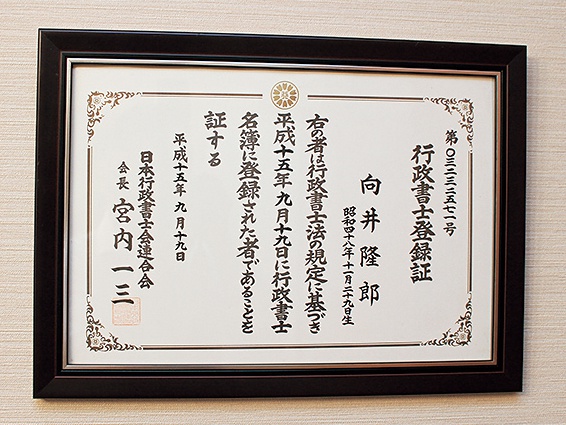 第〇三二三一五七一号
行政書士登録証
向井隆郎
昭和四十八年十一月二十九日生
右の者は行政書士法の規定に基づき
平成十五年九月十九日に行政書士
名簿に登録された者であることを
証する
平成十五年九月十九日
日本行政書士会連合会
会長 宮内一三